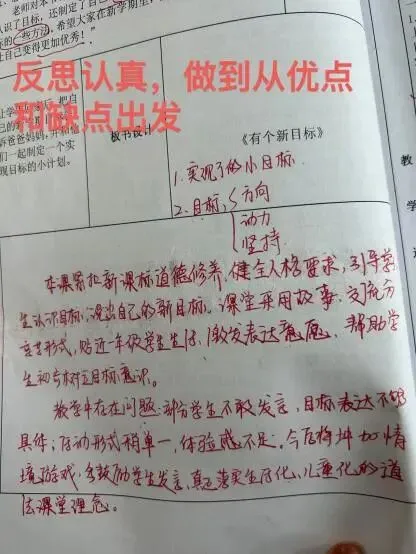 老师对本
识了目标，还制定了自
标的一些方法。希望大家在新学期里
让自己变得更加优秀！”
反思认真，做到从优点
和缺点出发
板书设计
《有个新目标》
1. 实现了的小目标
2. 目标
方向
动力
坚持
们一起制定一个实
现目标的小计划。
教
学
本课紧扣新课标道德修养，健全人格要求，引导学
生认识目标，说出自己的新目标。课堂采用故事、交流分
享等形式，贴近一年级学生生活，激发表达意愿，帮助学
生初步树立目标意识。
教学中存在问题：部分学生不敢发言，目标表达不够
具体；活动形式稍单一，体验感不足。今后将增加情
境游戏，多鼓励学生发言，真正落实生活化、儿童化的道
法课堂理念。